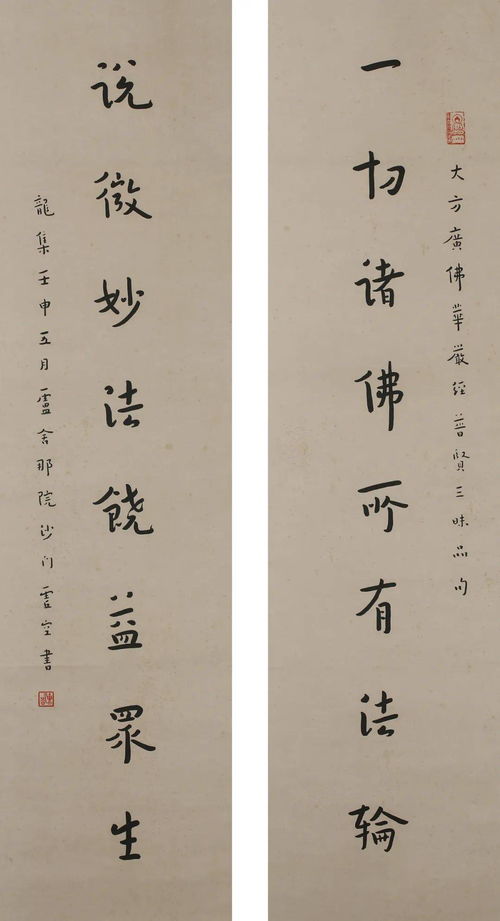 大方廣佛華嚴經普賢三昧品句
一切諸佛所有法輪
說微妙法饒益眾生
龍集壬申五月盧舍那院沙门空書